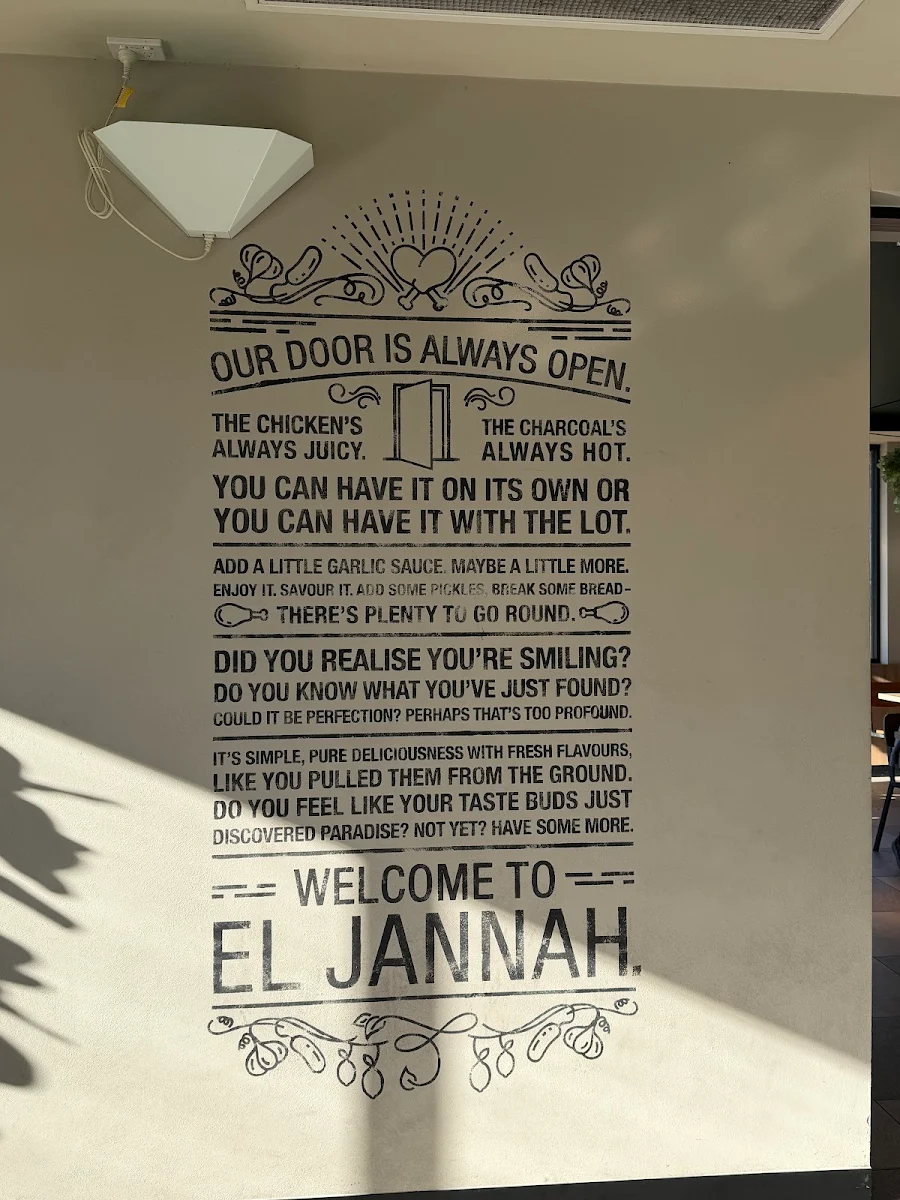 OUR DOOR IS ALWAYS OPEN.
THE CHICKEN'S
ALWAYS JUICY.
THE CHARCOAL'S
ALWAYS HOT.
YOU CAN HAVE IT ON ITS OWN OR
YOU CAN HAVE IT WITH THE LOT.
ADD A LITTLE GARLIC SAUCE. MAYBE A LITTLE MORE.
ENJOY IT. SAVOUR IT. ADD SOME PICKLES, BREAK SOME BREAD-
THERE'S PLENTY TO GO ROUND.
DID YOU REALISE YOU'RE SMILING?
DO YOU KNOW WHAT YOU'VE JUST FOUND?
COULD IT BE PERFECTION? PERHAPS THAT'S TOO PROFOUND.
IT'S SIMPLE, PURE DELICIOUSNESS WITH FRESH FLAVOURS,
LIKE YOU PULLED THEM FROM THE GROUND.
DO YOU FEEL LIKE YOUR TASTE BUDS JUST
DISCOVERED PARADISE? NOT YET? HAVE SOME MORE.
WELCOME TO
EL JANNAH.